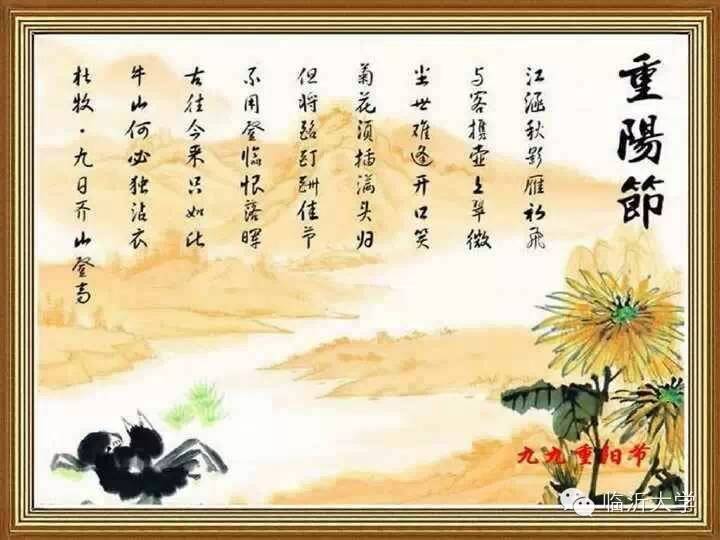 重陽節
江涵秋影雁初飛
与客携壶上翠微
尘世难逢开口笑
菊花须插满头归
但将酩酊酬佳节
不用登临恨落晖
古往今来只如此
牛山何必独沾衣
杜牧·九日齐山登高
九九重阳节
临沂大学